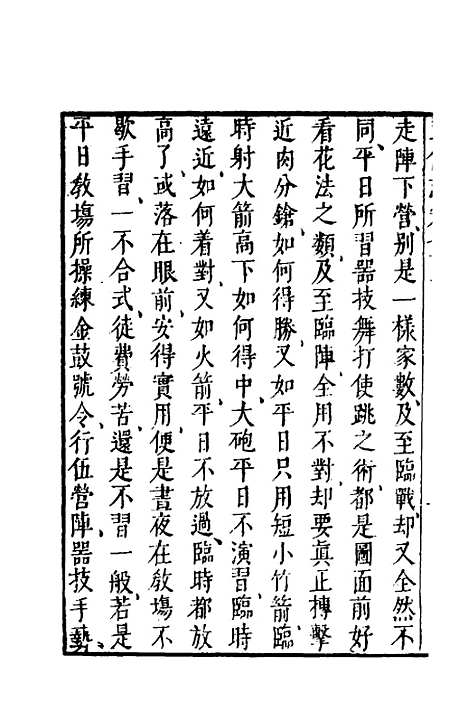 走陣下營別是一樣家數及至臨戰却又全然不
同平日所習器技舞打使跳之術都是圖面前好
看花法之類及至臨陣全用不對却要真正搏擊
近肉分鎗如何得勝又如平日只用短小竹箭臨
時射大箭高下如何得中大砲平日不演習臨時
遠近如何着對又如火箭平日不放過臨時都放
高了或落在眼前安得實用便是晝夜在敎塲不
歇手習一不合式徒費勞苦還是不習一般若是
平日敎塲所操練金鼓號令行伍營陣器技手藝